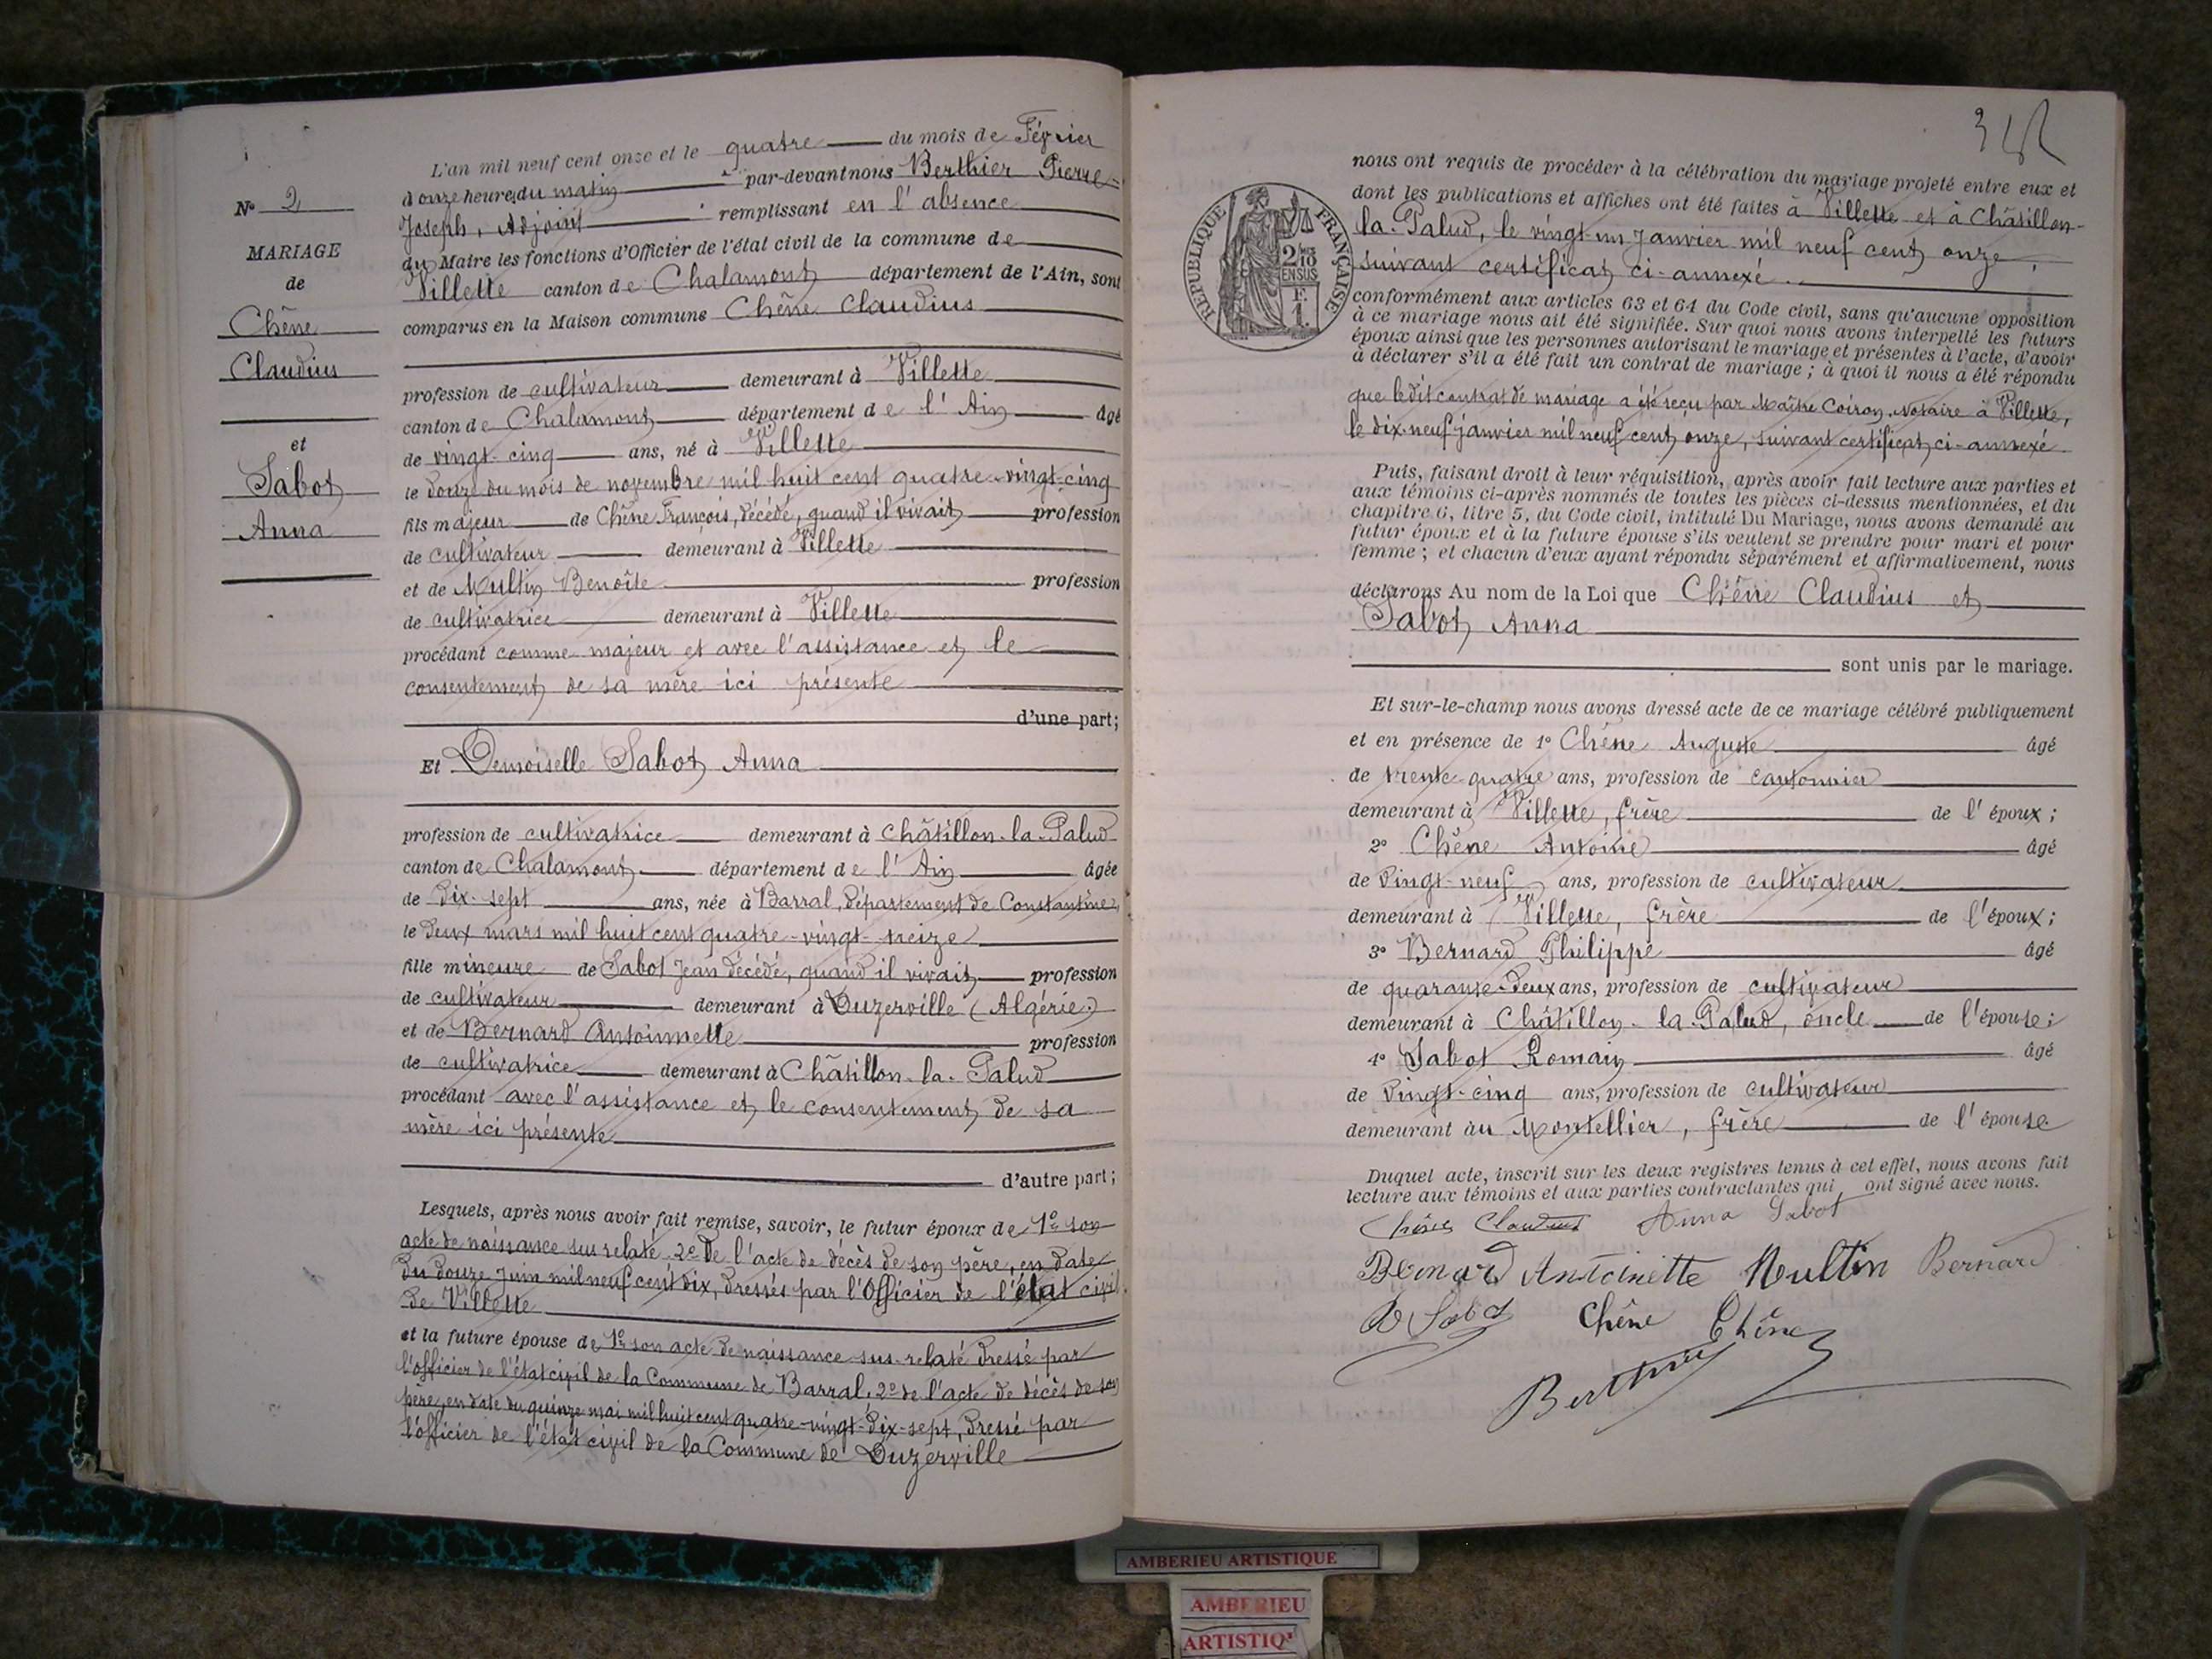 N° 2
MARIAGE
de
Chêne
Claudius
et
Sabot
Anna
L'an mil neuf cent onze et le quatre du mois de Février
à onze heures du matin par-devant nous Berthier Pierre-
Joseph, Adjoint remplissant en l'absence
du Maire les fonctions d'Officier de l'état civil de la commune de
Villette canton de Chalamont département de l'Ain, sont
comparus en la Maison commune Chêne Claudius
profession de cultivateur demeurant à Villette
canton de Chalamont département de l'Ain âgé
de vingt-cinq ans, né à Villette
le douze du mois de novembre mil huit cent quatre-vingt-cinq
fils majeur de Chêne François, décédé, quand il vivait profession
de cultivateur demeurant à Villette
et de Multin Benoîte profession
de cultivatrice demeurant à Villette
procédant comme majeur et avec l'assistance et le
consentement de sa mère ici présente
d'une part;
Et Demoiselle Sabot Anna
profession de cultivatrice demeurant à Châtillon-la-Palud
canton de Chalamont département de l'Ain âgée
de dix-sept ans, née à Barral, département de Constantine,
le deux mars mil huit cent quatre-vingt-treize
fille mineure de Sabot Jean décédé, quand il vivait profession
de cultivateur demeurant à Duzerville (Algérie)
et de Bernard Antoinnette profession
de cultivatrice demeurant à Châtillon-la-Palud
procédant avec l'assistance et le consentement de sa
mère ici présente
d'autre part;
Lesquels, après nous avoir fait remise, savoir, le futur époux de 1° son
acte de naissance sus relaté 2° de l'acte de décès de son père, en date
du douze Juin mil neuf cent dix, dressés par l'Officier de l'état civil
de Villette
et la future épouse de 1° son acte de naissance sus-relaté dressé par
l'officier de l'état civil de la Commune de Barral, 2° de l'acte de décès de son
père, en date du quinze mai mil huit cent quatre-vingt-dix-sept, dressé par
l'officier de l'état civil de la Commune de Duzerville
RÉPUBLIQUE FRANÇAISE
2/10 EN SUS
F.
1.
nous ont requis de procéder à la célébration du mariage projeté entre eux et
dont les publications et affiches ont été faites à Villette et à Châtillon-
la-Palud, le vingt-un Janvier mil neuf cent onze,
suivant certificat ci-annexé.
conformément aux articles 63 et 64 du Code civil, sans qu'aucune opposition
à ce mariage nous ait été signifiée. Sur quoi nous avons interpellé les futurs
époux ainsi que les personnes autorisant le mariage et présentes à l'acte, d'avoir
à déclarer s'il a été fait un contrat de mariage; à quoi il nous a été répondu
que ledit contrat de mariage a été reçu par Maître Coiron, Notaire à Villette,
le dix-neuf janvier mil neuf cent onze, suivant certificat ci-annexé
Puis, faisant droit à leur réquisition, après avoir fait lecture aux parties et
aux témoins ci-après nommés de toutes les pièces ci-dessus mentionnées, et du
chapitre 6, titre 5, du Code civil, intitulé Du Mariage, nous avons demandé au
futur époux et à la future épouse s'ils veulent se prendre pour mari et pour
femme; et chacun d'eux ayant répondu séparément et affirmativement, nous
déclarons Au nom de la Loi que Chêne Claudius et
Sabot Anna
sont unis par le mariage.
Et sur-le-champ nous avons dressé acte de ce mariage célébré publiquement
et en présence de 1° Chêne Auguste âgé
de trente quatre ans, profession de cantonnier
demeurant à Villette, frère de l'époux;
2° Chêne Antoine âgé
de vingt-neuf ans, profession de cultivateur
demeurant à Villette, frère de l'époux;
3° Bernard Philippe âgé
de quarante-deux ans, profession de cultivateur
demeurant à Châtillon-la-Palud, oncle de l'épouse;
4° Sabot Romain âgé
de vingt-cinq ans, profession de cultivateur
demeurant au Montellier, frère de l'épouse
Duquel acte, inscrit sur les deux registres tenus à cet effet, nous avons fait
lecture aux témoins et aux parties contractantes qui ont signé avec nous.
Chêne Claudius Anna Sabot
Bernard Antoinette Multin Bernard
R Sabot Chêne Chêne
Berthier
AMBERIEU ARTISTIQUE
AMBERIEU
ARTISTIQ